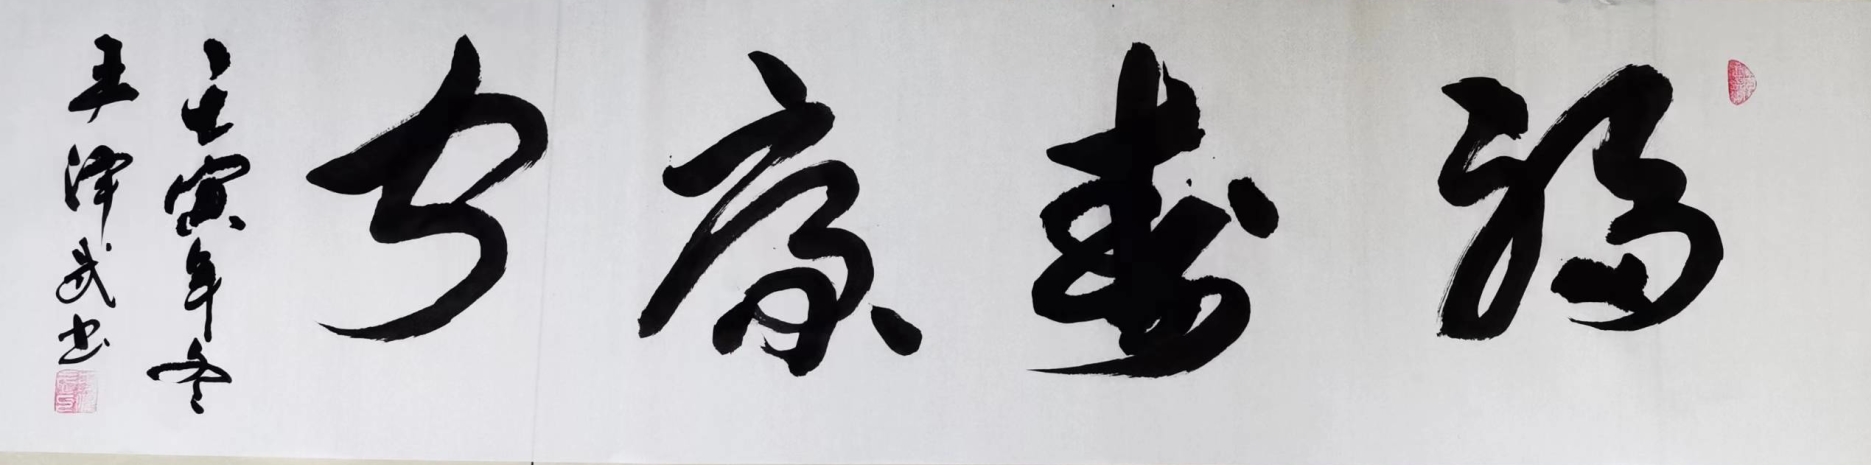 福寿康宁
壬寅年冬
王泽武书